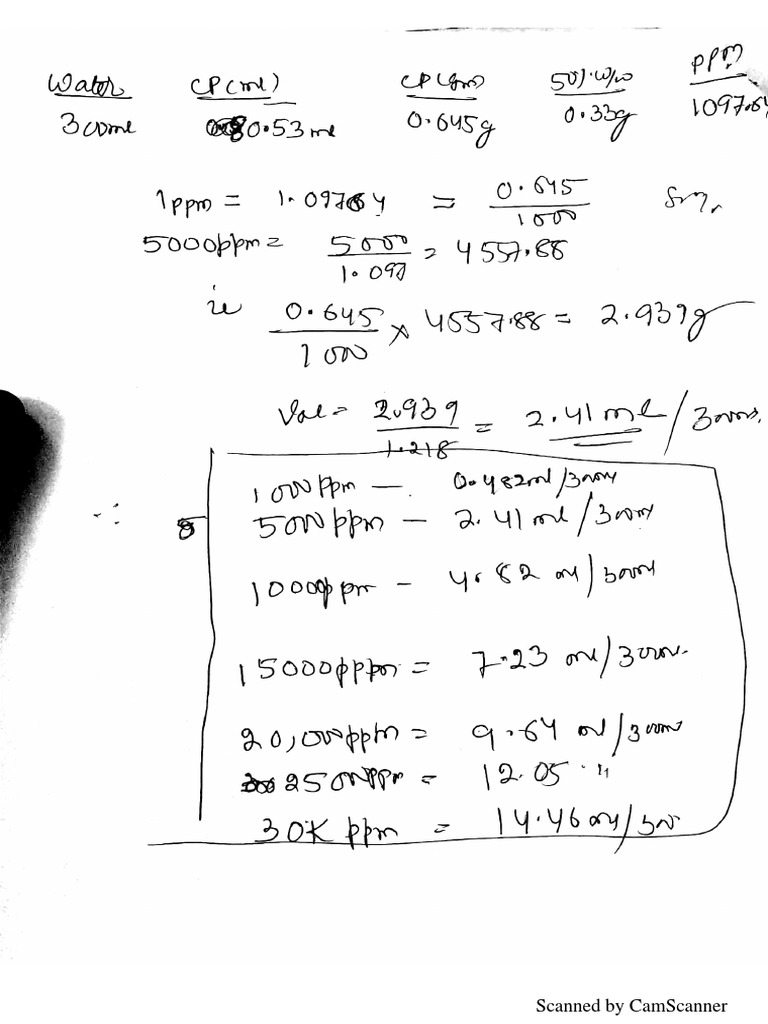 Water CP(ml) CP(gm) 50% w/w PPM
300ml 0.53ml 0.645g 0.33g 1097.64
1ppm = 1.09764 = 0.645/1000
5000ppm = 5000/1.097 = 4557.88
ie 0.645/1000 × 4557.88 = 2.939g
Vol = 2.939/1.218 = 2.41 ml/300ml.
∴ 1000ppm — 0.482ml/300ml
5000ppm — 2.41 ml/300ml
10000ppm — 4.82 ml/300ml
15000ppm = 7.23 ml/300ml.
20,000ppm = 9.64 ml/300ml
25000ppm = 12.05 "
30K ppm = 14.46 ml/300
Scanned by CamScanner